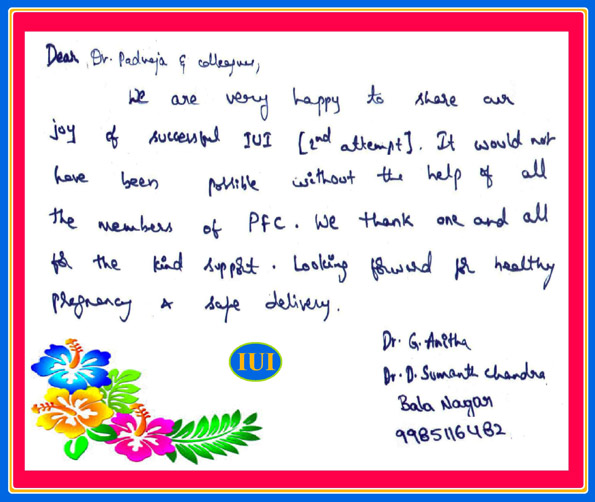 Dear, Dr. Padmaja & colleagues,
We are very happy to share our
joy of successful IUI [2nd attempt]. It would not
have been possible without the help of all
the members of PFC. We thank one and all
for the kind support. Looking forward for healthy
pregnancy & safe delivery.
IUI
Dr. G. Anitha
Dr. D. Sumanth Chandra
Bala Nagar
9985116482